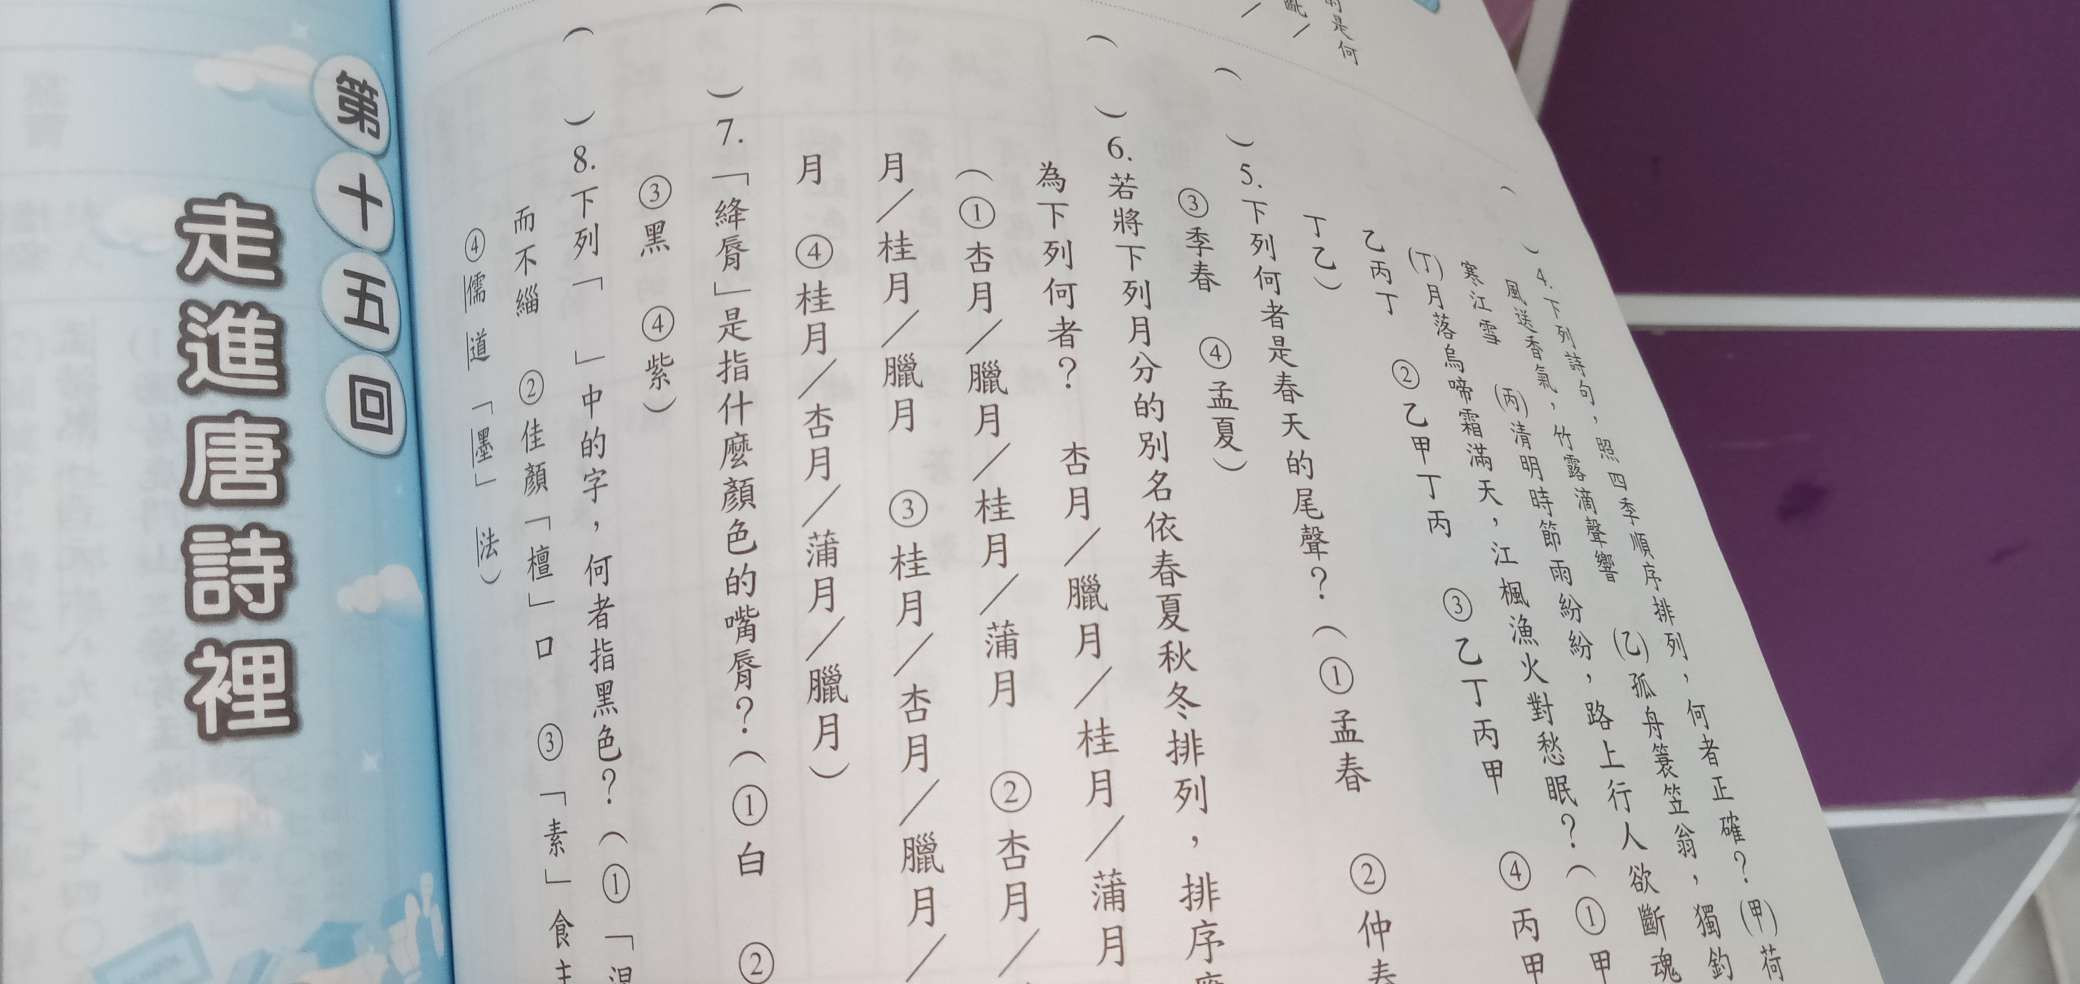 的是何
眠／
／
（　）4.下列詩句，照四季順序排列，何者正確？(甲)荷
風送香氣，竹露滴聲響　(乙)孤舟簑笠翁，獨釣
寒江雪　(丙)清明時節雨紛紛，路上行人欲斷魂
(丁)月落烏啼霜滿天，江楓漁火對愁眠？（①甲
乙丙丁　②乙甲丁丙　③乙丁丙甲　④丙甲
丁乙）
（　）5.下列何者是春天的尾聲？（①孟春　②仲春
③季春　④孟夏）
（　）6.若將下列月分的別名依春夏秋冬排列，排序
為下列何者？　杏月／臘月／桂月／蒲月
（①杏月／臘月／桂月／蒲月　②杏月／
月／桂月／臘月　③桂月／杏月／臘月／
月　④桂月／杏月／蒲月／臘月）
（　）7.「絳脣」是指什麼顏色的嘴脣？（①白　②
③黑　④紫）
（　）8.下列「　」中的字，何者指黑色？（①「涅
而不緇　②佳顏「檀」口　③「素」食主
④儒道「墨」法）
第十五回
走進唐詩裡